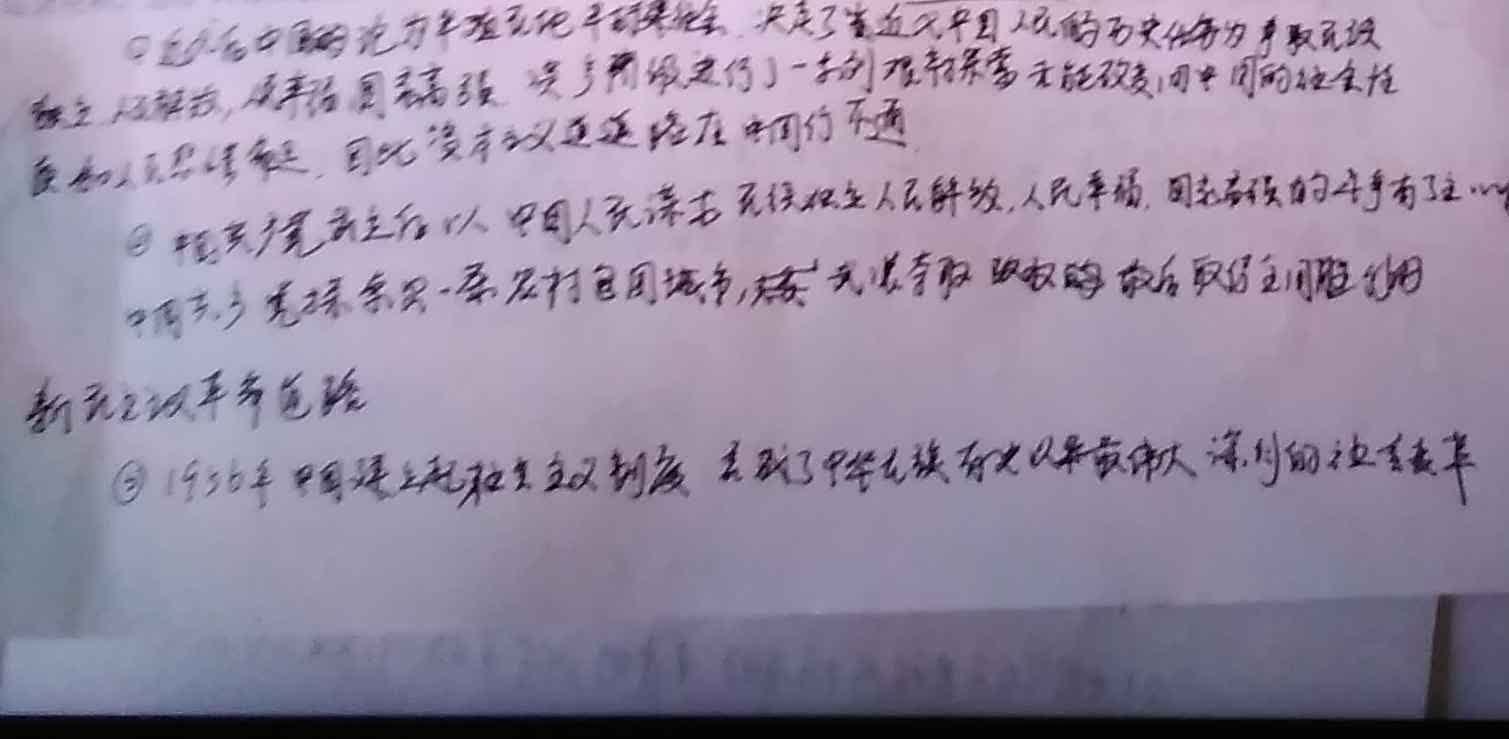 ①近代后中国的沦为半殖民地半封建社会,决定了着近代中国人民的历史任务为争取民族
独立人民解放,人民幸福国家富强 各阶级进行了一系列 探索 能改变旧中国的社会性
质和人民 因此资本主义道路在中国行不通
②中国共产党成立后以 中国人民谋 民族独立人民解放,人民幸福,国家富强的斗争有了主
中国共产党探索出一条农村包围城市,武装夺取政权的 最后取得全国胜利的
新民主主义革命道路
③1956年中国建立起社会主义制度 实现了中华民族有史以来最伟大深刻的社会变革